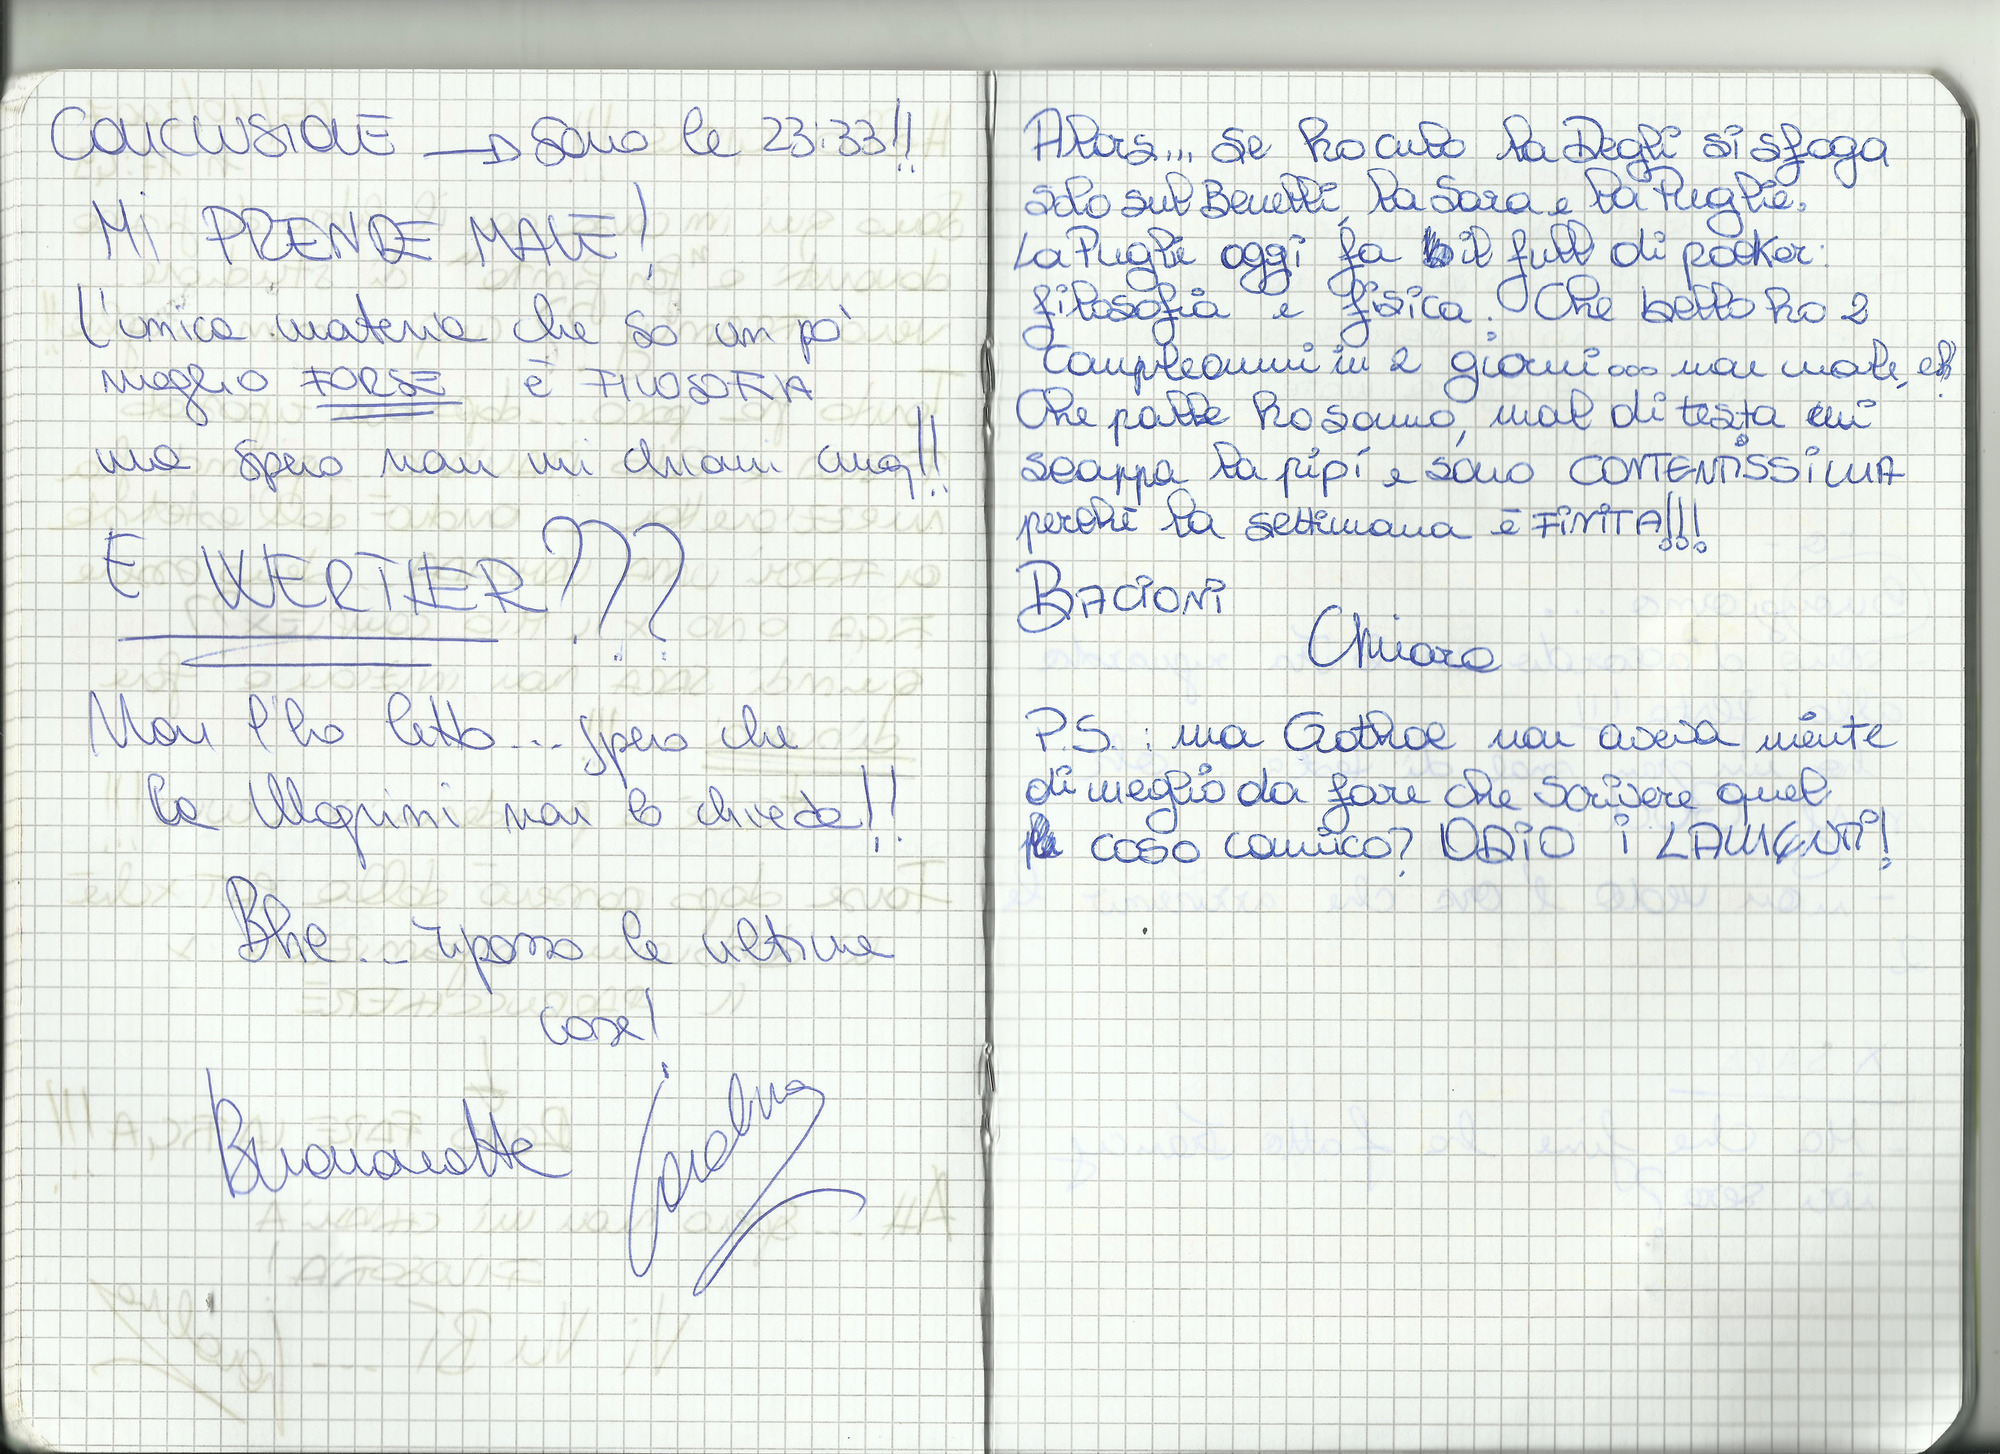 CONCLUSIONE → Sono le 23:33!!
Mi PRENDE MALE!
L'unica materia che so un po'
meglio FORSE è FILOSOFIA
ma spero non mi chiami anq!!
E WERTHER???
Non l'ho letto... spero che
la Magrini non lo chieda!!
Bhe... ripasso le ultime
cose!
Buonanotte
Allora... se ho culo la Degli si sfoga
solo sul Benetti, la Sara e la Puglie.
La Pugli oggi fa il full di pocker:
filosofia e fisica. Che bello ho 2
compleanni in 2 giorni... non male, eh?
Che palle ho sonno, mal di testa mi
scappa la pipì e sono CONTENTISSIMA
perché la settimana è FINITA!!!
BACIONI
Chiara
P.S.: ma Gothoe non aveva niente
di meglio da fare che scrivere quel
coso comico? ODIO i LAMENTI!